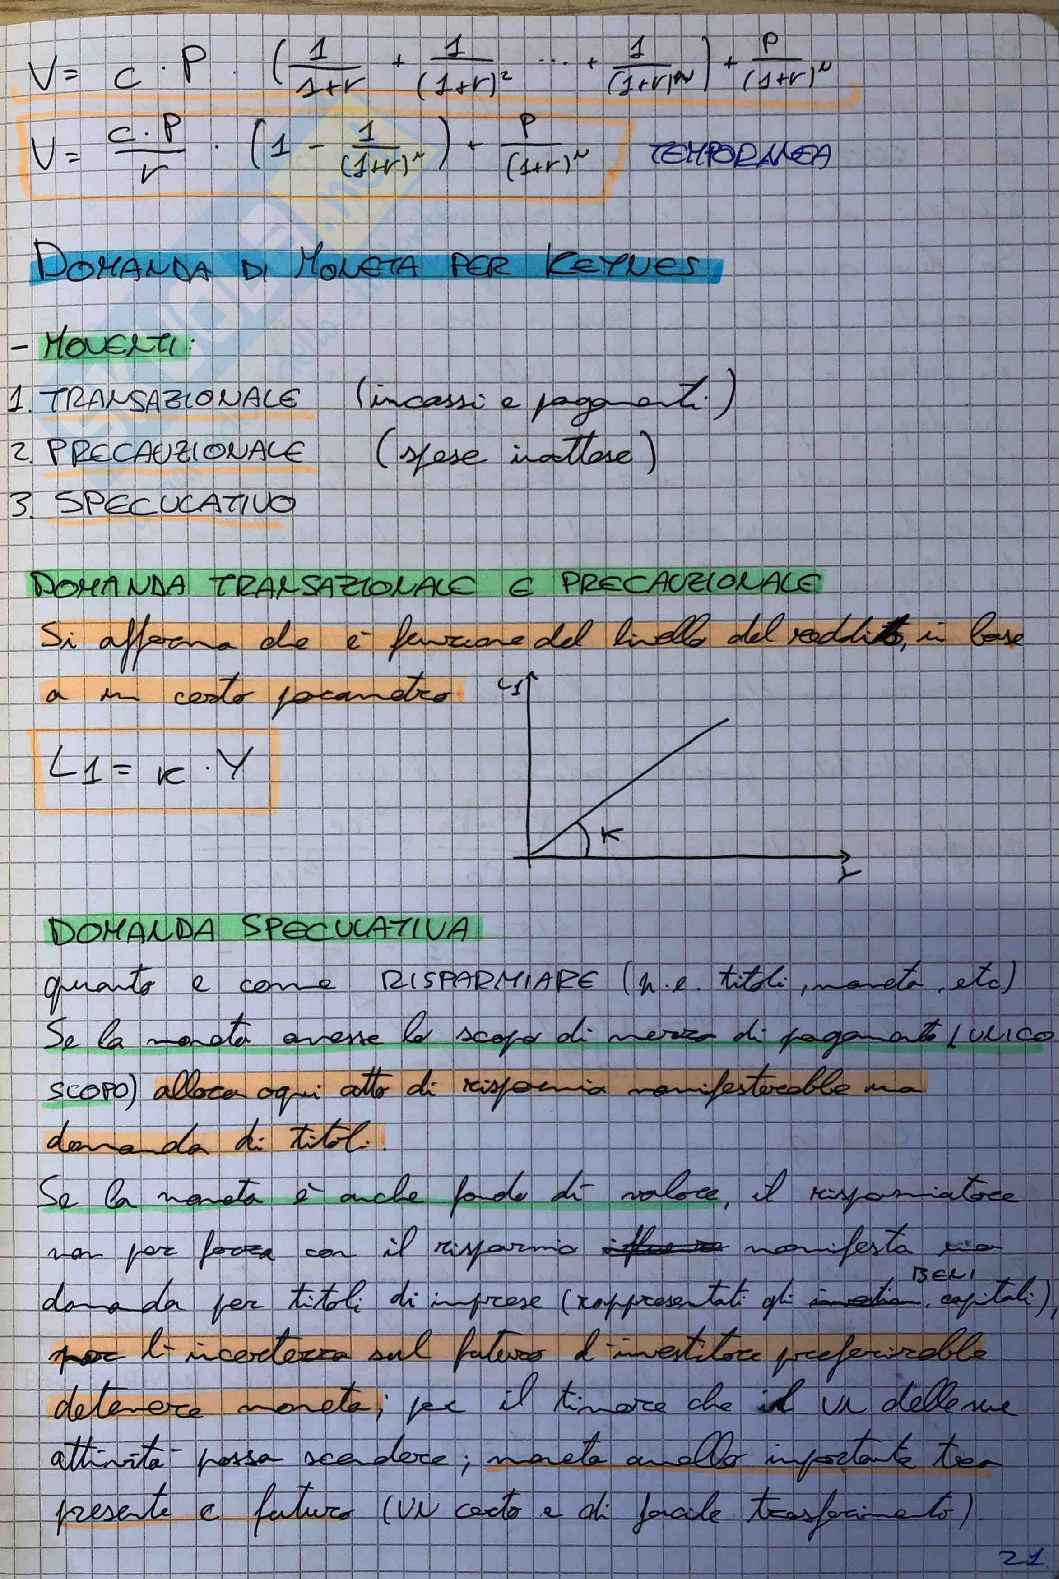 V = c · P · (1/(1+r) + 1/(1+r)² ... + 1/(1+r)ᴺ) + P/(1+r)ᴺ
V = c·P/r · (1 - 1/(1+r)ᴺ) + P/(1+r)ᴺ TEMPORANEA
DOMANDA DI MONETA PER KEYNES
- MOVENTI:
1. TRANSAZIONALE (incassi e pagamenti)
2. PRECAUZIONALE (spese inattese)
3. SPECULATIVO
DOMANDA TRANSAZIONALE E PRECAUZIONALE
Si afferma che è funzione del livello del reddito, in base
a un certo parametro
L1
L1 = K · Y
K
Y
DOMANDA SPECULATIVA
quanto e come RISPARMIARE (p.e. titoli, moneta, etc)
Se la moneta avesse lo scopo di mezzo di pagamento (UNICO
SCOPO) allora ogni atto di risparmio manifesterebbe una
domanda di titoli.
Se la moneta è anche fondo di valore, il risparmiatore
non per forza con il risparmio manifesta una
BENI
domanda per titoli di imprese (rappresentati gli capitali),
per l'incertezza sul futuro l'investitore preferirebbe
detenere moneta; per il timore che il VN delle sue
attività possa scendere; moneta anello importante tra
presente e futuro (VN certo e di facile trasferimento).
21